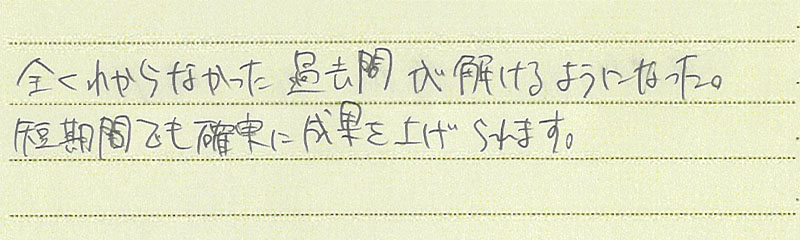 全くわからなかった過去問が解けるようになった。
短期間でも確実に成果を上げられます。